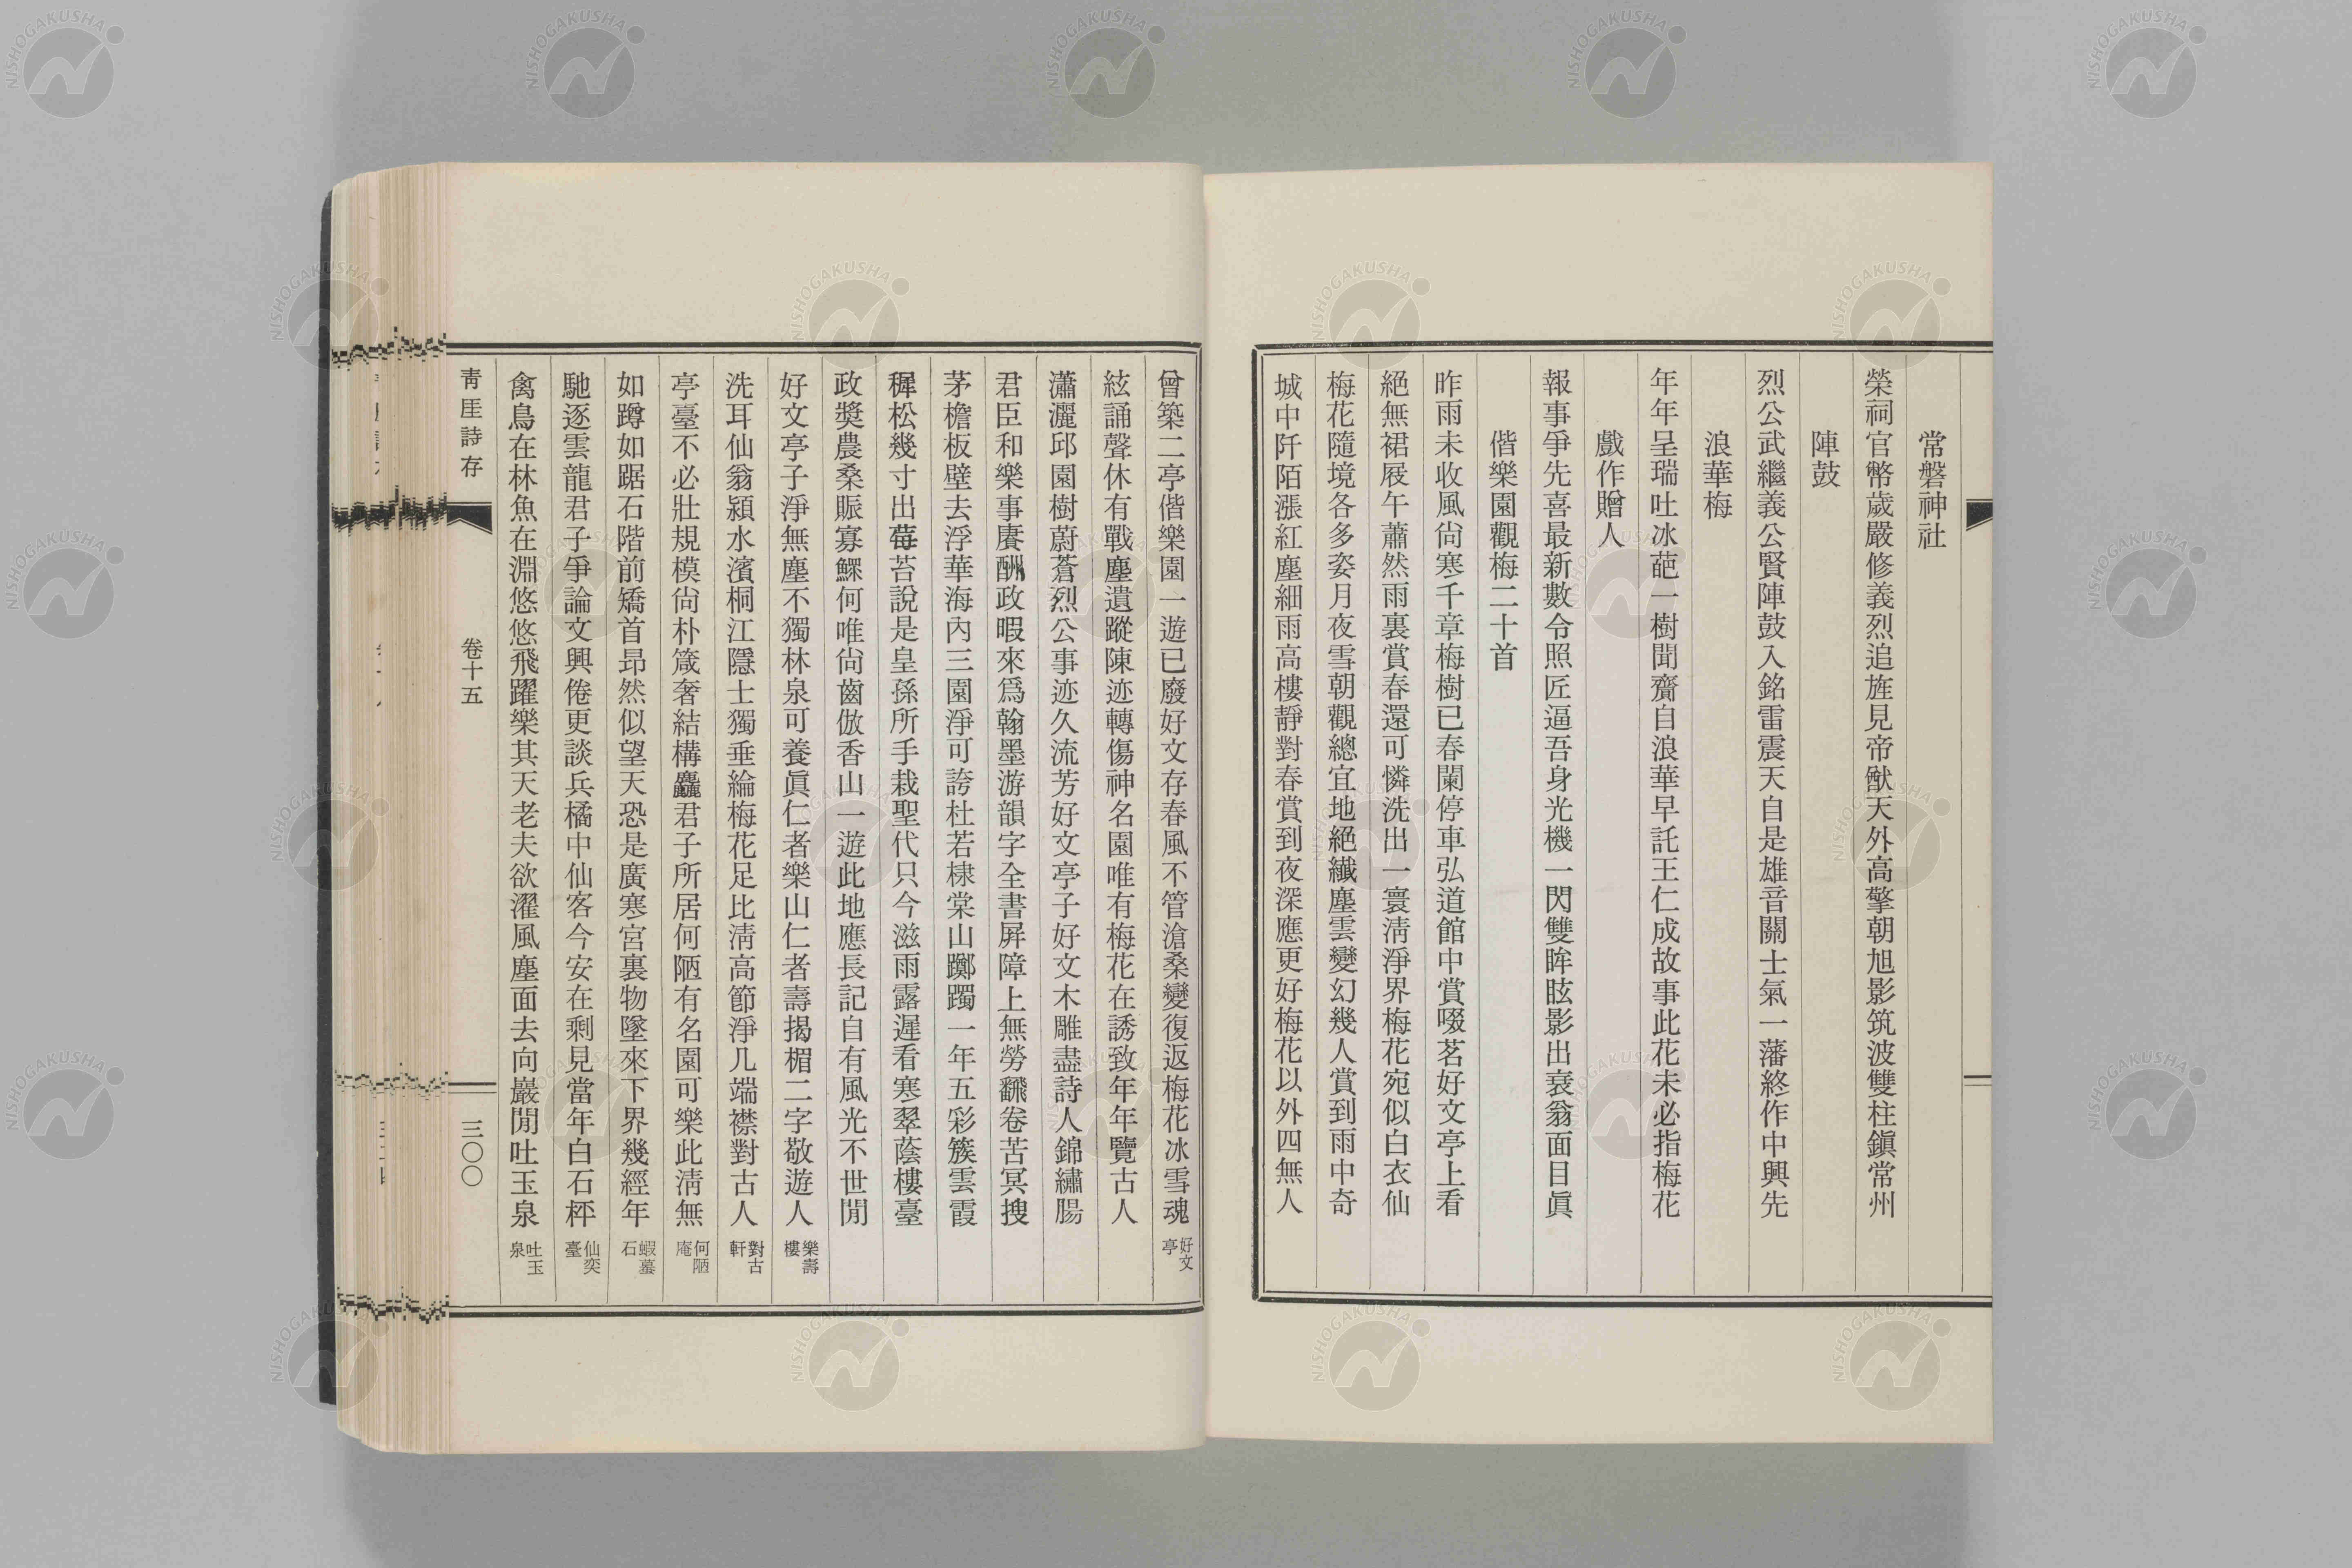 常磐神社
榮祠官幣歲嚴修義烈追旌見帝猷天外高擎朝旭影筑波雙柱鎭常州
陣鼓
烈公武繼義公賢陣鼓入銘雷震天自是雄音關士氣一藩終作中興先
浪華梅
年年呈瑞吐冰葩一樹聞齎自浪華早託王仁成故事此花未必指梅花
戲作贈人
報事爭先喜最新數令照匠逼吾身光機一閃雙眸眩影出衰翁面目眞
偕樂園觀梅二十首
昨雨未收風尙寒千章梅樹已春闌停車弘道館中賞啜茗好文亭上看
絕無裙屐午蕭然雨裏賞春還可憐洗出一寰淸淨界梅花宛似白衣仙
梅花隨境各多姿月夜雪朝觀總宜地絕纖塵雲變幻幾人賞到雨中奇
城中阡陌漲紅塵細雨高樓靜對春賞到夜深應更好梅花以外四無人
曾築二亭偕樂園一遊已廢好文存春風不管滄桑變復返梅花冰雪魂 好文亭
絃誦聲休有戰塵遺蹤陳迹轉傷神名園唯有梅花在誘致年年覽古人
瀟灑邱園樹蔚蒼烈公事迹久流芳好文亭子好文木雕盡詩人錦繡腸
君臣和樂事賡酬政暇來爲翰墨游韻字全書屏障上無勞飜卷苦冥搜
茅檐板壁去浮華海內三園淨可誇杜若棣棠山躑躅一年五彩簇雲霞
穉松幾寸出莓苔說是皇孫所手栽聖代只今滋雨露遲看寒翠蔭樓臺
政獎農桑賑寡鰥何唯尙齒倣香山一遊此地應長記自有風光不世閒
好文亭子淨無塵不獨林泉可養眞仁者樂山仁者壽揭楣二字敬遊人 樂壽樓
洗耳仙翁潁水濱桐江隱士獨垂綸梅花足比淸高節淨几端襟對古人 對古軒
亭臺不必壯規模尙朴箴奢結構麤君子所居何陋有名園可樂此淸無 何陋庵
如蹲如踞石階前矯首昂然似望天恐是廣寒宮裏物墜來下界幾經年 蝦蟇石
馳逐雲龍君子爭論文興倦更談兵橘中仙客今安在剩見當年白石枰 仙奕臺
禽鳥在林魚在淵悠悠飛躍樂其天老夫欲濯風塵面去向巖閒吐玉泉 吐玉泉
靑厓詩存
卷十五
三〇〇